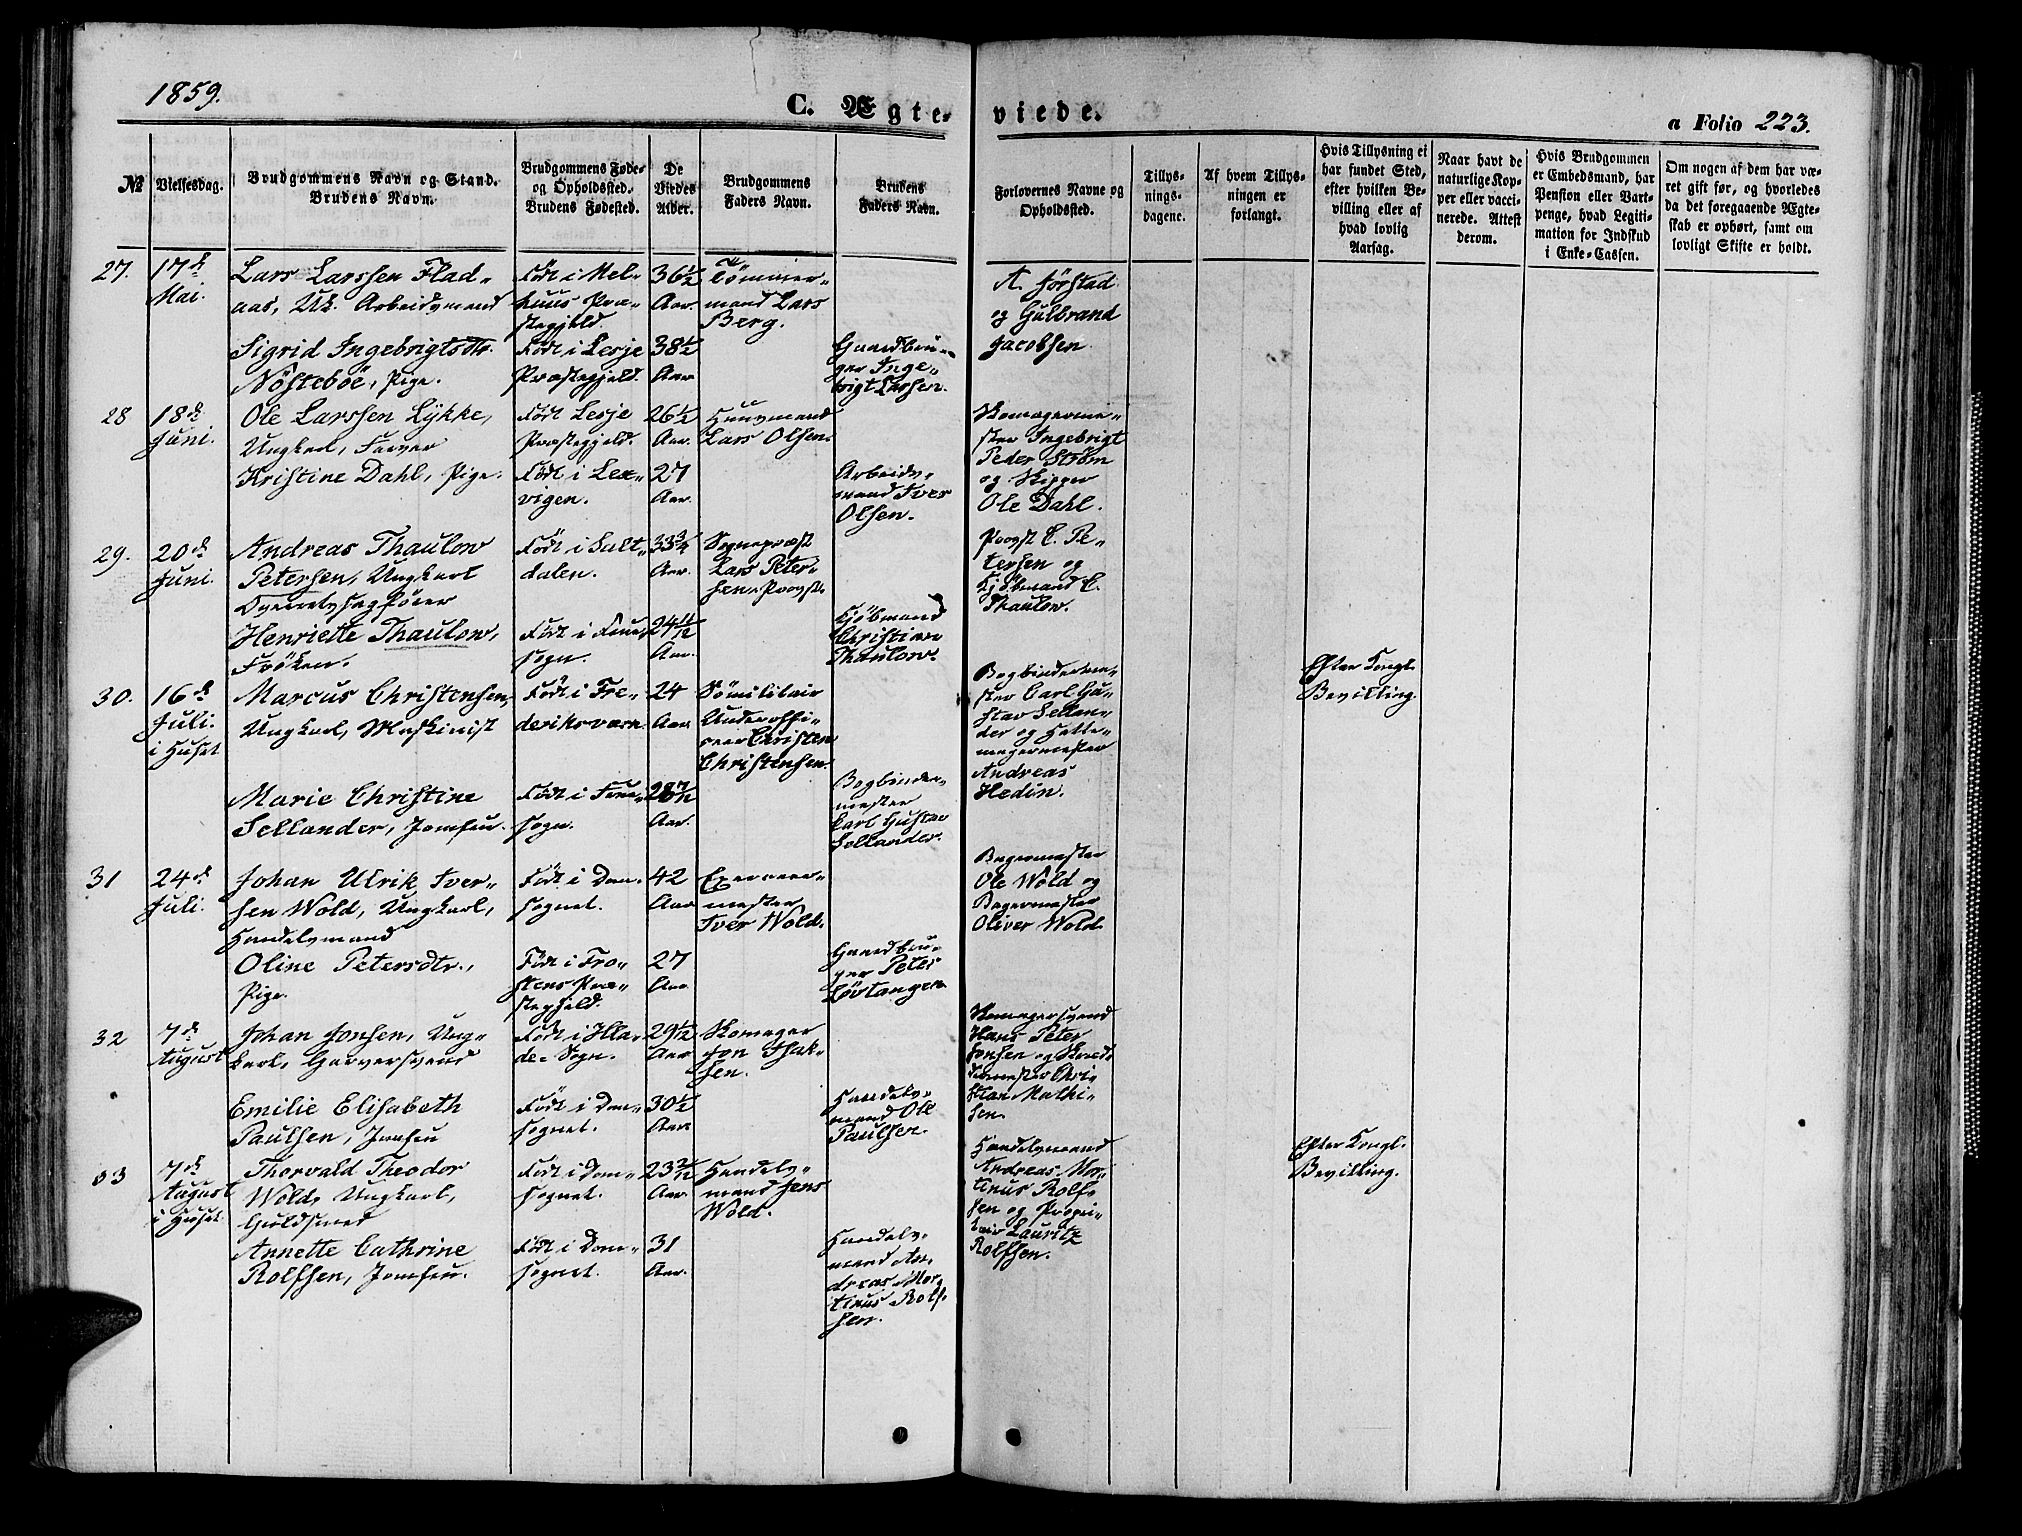 1859.
C. Ægte-
viede.
a Folio 223.
№
Vielsesdag.
Brudgommens Navn og Stand.
Brudens Navn.
Brudgommens Føde-
og Opholdssted.
Brudens Fødested.
De
Viedes
Alder.
Brudgommens
Faders Navn.
Brudens
Faders Navn.
Forlovernes Navne og
Opholdssted.
Tillys-
nings-
dagene.
Af hvem Tillys-
ningen er
forlangt.
Hvis Tillysning ei
har fundet Sted,
efter hvilken Be-
villing eller af
hvad lovlig
Aarsag.
Naar havt de
naturlige Kop-
per eller vacci-
nerede. Attest
derom.
Hvis Brudgommen
er Embedsmand, har
Pension eller Vart-
penge, hvad Legiti-
mation for Indskud
i Enke-Cassen.
Om nogen af dem har væ-
ret gift før, og hvorledes
da det foregaaende Ægte-
skab er ophørt, samt om
lovligt Skifte er holdt.
27.
17de
Mai.
Lars Larssen Flad-
aas, Uk. Arbeidsmand
Født i Mel-
huus Præ-
stegjeld.
36½
Aar.
Tømmer-
mand Lars
Berg.
A. Jørstad
og Gulbrand
Jacobsen
Sigrid Ingebrigtsdtr.
Nøstebøe, Pige.
Født i Lesje
Præstegjeld.
38½
Aar
Gaardbru-
ger Inge-
brigt Larsen.
28
18de
Juni.
Ole Larssen Lykke,
Ungkarl, Farver
Født Lesje
Præstegjeld.
26½
Aar.
Huusmand
Lars Olsen.
Skomagerme-
ster Ingebrigt
Peder Strøm
og Skipper
Ole Dahl.
Kristine Dahl, Pige.
Født i Lex-
vigen.
27
Aar.
Arbeids-
mand Iver
Olsen.
29.
20de
Juni.
Andreas Thaulow
Petersen, Ungkarl
Overretssagfører
Født i Salt-
dalen.
33¾
Aar.
Sognepræst
Lars Peter-
sen, Provst.
Provst C. Pe-
tersen og
Kjøbmand C.
Thaulow.
Henriette Thaulow,
Frøken.
Født i Frue
sogn.
24 11/12
Aar.
Kjøbmand
Christian
Thaulow.
30.
16de
Juli.
i Huset
Marcus Christensen,
Ungkarl, Maskinist
Født i Fre-
deriksværn
24
Aar.
Sømilitair
Underoffi-
ceer Christen
Christensen.
Bogbinderme-
ster Carl Gu-
stav Sellan-
der og Hatte-
magermester
Andreas
Hedin.
Efter Kongl.
Bevilling.
Marie Christine
Sellander, Jomfru.
Født i Frue-
sogn.
28 7/12
Aar.
Bogbinder-
mester
Carl Gustav
Sellander.
31
24de
Juli.
Johan Ulrik Iver-
sen Wold, Ungkarl,
Handelsmand
Født i Dom-
sognet.
42
Aar
Exerceer-
mester
Iver Wold.
Bagermester
Ole Wold og
Bagermester
Oliver Wold.
Oline Petersdtr.,
Pige.
Født i Fro-
stens Præ-
stegjeld.
27
Aar
Gaardbru-
ger Peter
Løvtangen
32
7de
August
Johan Jonsen, Ung-
karl, Garversvend
Født i Hla-
de-Sogn.
29 1/12
Aar
Skomager
Jon Isak-
sen.
Skomagersvend
Hans Peter
Jonsen og Skræd-
dermester Chri-
stian Mathi-
sen.
Emilie Elisabeth
Paulsen, Jomfru
Født i Dom-
sognet.
30½
Aar.
Handels-
mand Ole
Paulsen.
33
7de
August
i Huset
Thorvald Theodor
Wold, Ungkarl,
Guldsmed
Født i Dom-
sognet.
23 2/12
Aar.
Handels-
mand Jens
Wold.
Handelsmand
Andreas Mor-
tinus Rolf-
sen og Propri-
tair Lauritz
Rolfsen.
Efter Kongl.
Bevilling.
Annette Cathrine
Rolfsen, Jomfru.
Født i Dom-
sognet.
31
Aar.
Handels-
mand An-
dreas Mor-
tinus Rolf-
sen.